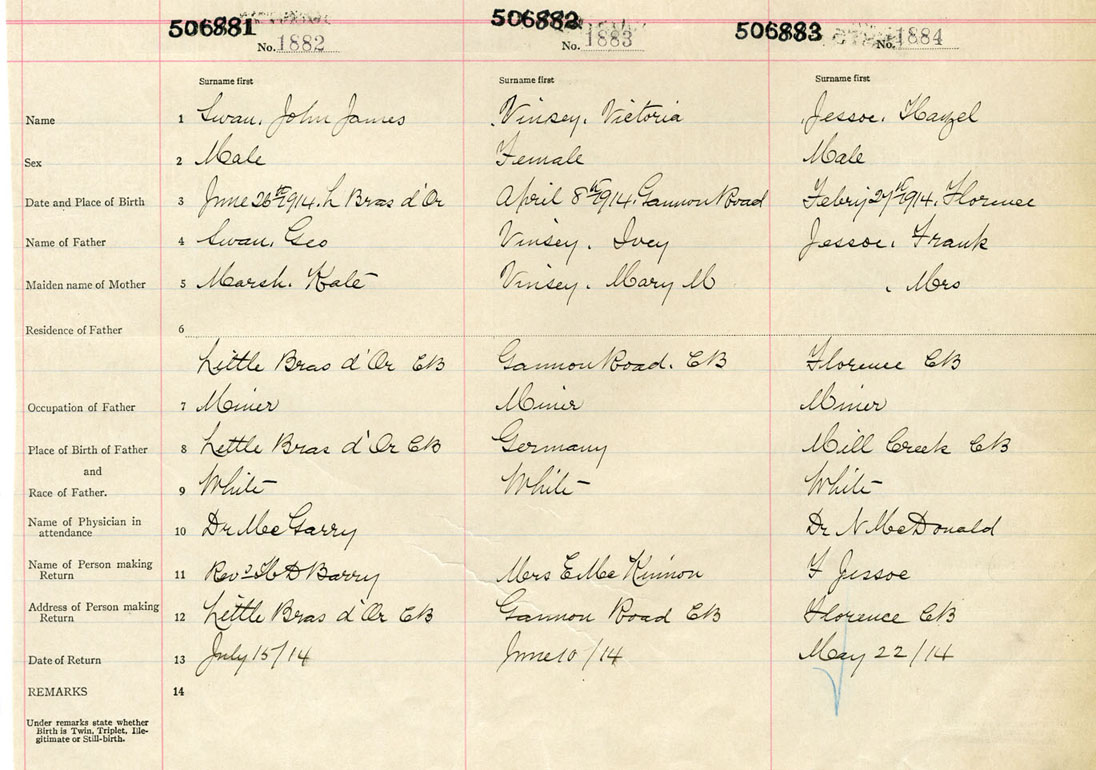 506881 506882 506883
No. 1882 No. 1883 No. 1884
Surname first Surname first Surname first
Name 1 Swan, John James Vinsey, Victoria Jessoe, Hazel
Sex 2 Male Female Male
Date and Place of Birth 3 June 26th 1914, L Bras d'Or April 8th 1914, Gannon Road Febry 27th 1914, Florence
Name of Father 4 Swan, Geo Vinsey, Ivey Jessoe, Frank
Maiden name of Mother 5 Marsh, Kate Vinsey, Mary M , Mrs
Residence of Father 6
Little Bras d'Or CB Gannon Road, CB Florence CB
Occupation of Father 7 Miner Miner Miner
Place of Birth of Father 8 Little Bras d'Or CB Germany Mill Creek CB
and
Race of Father. 9 White White White
Name of Physician in
attendance 10 Dr MacGarry Dr N MacDonald
Name of Person making
Return 11 Revd H D Barry Mrs E MacKinnon F Jessoe
Address of Person making
Return 12 Little Bras d'Or CB Gannon Road CB Florence CB
Date of Return 13 July 15/14 June 10/14 May 22/14
REMARKS 14
Under remarks state whether
Birth is Twin, Triplet, Ille-
gitimate or Still-birth.